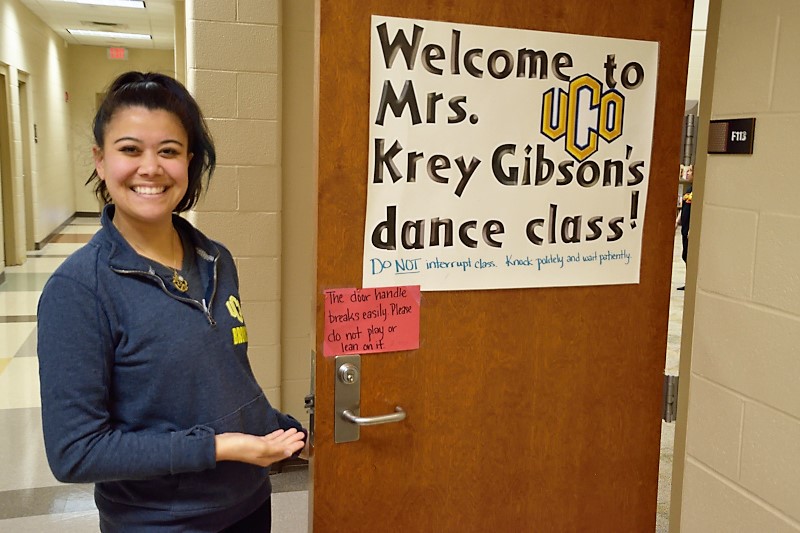 Welcome to
Mrs. UCO
Krey Gibson's
dance class!
DO NOT interrupt class. Knock politely and wait patiently.
The door handle
breaks easily. Please
do not play or
lean on it.
F113
UCO
EXIT